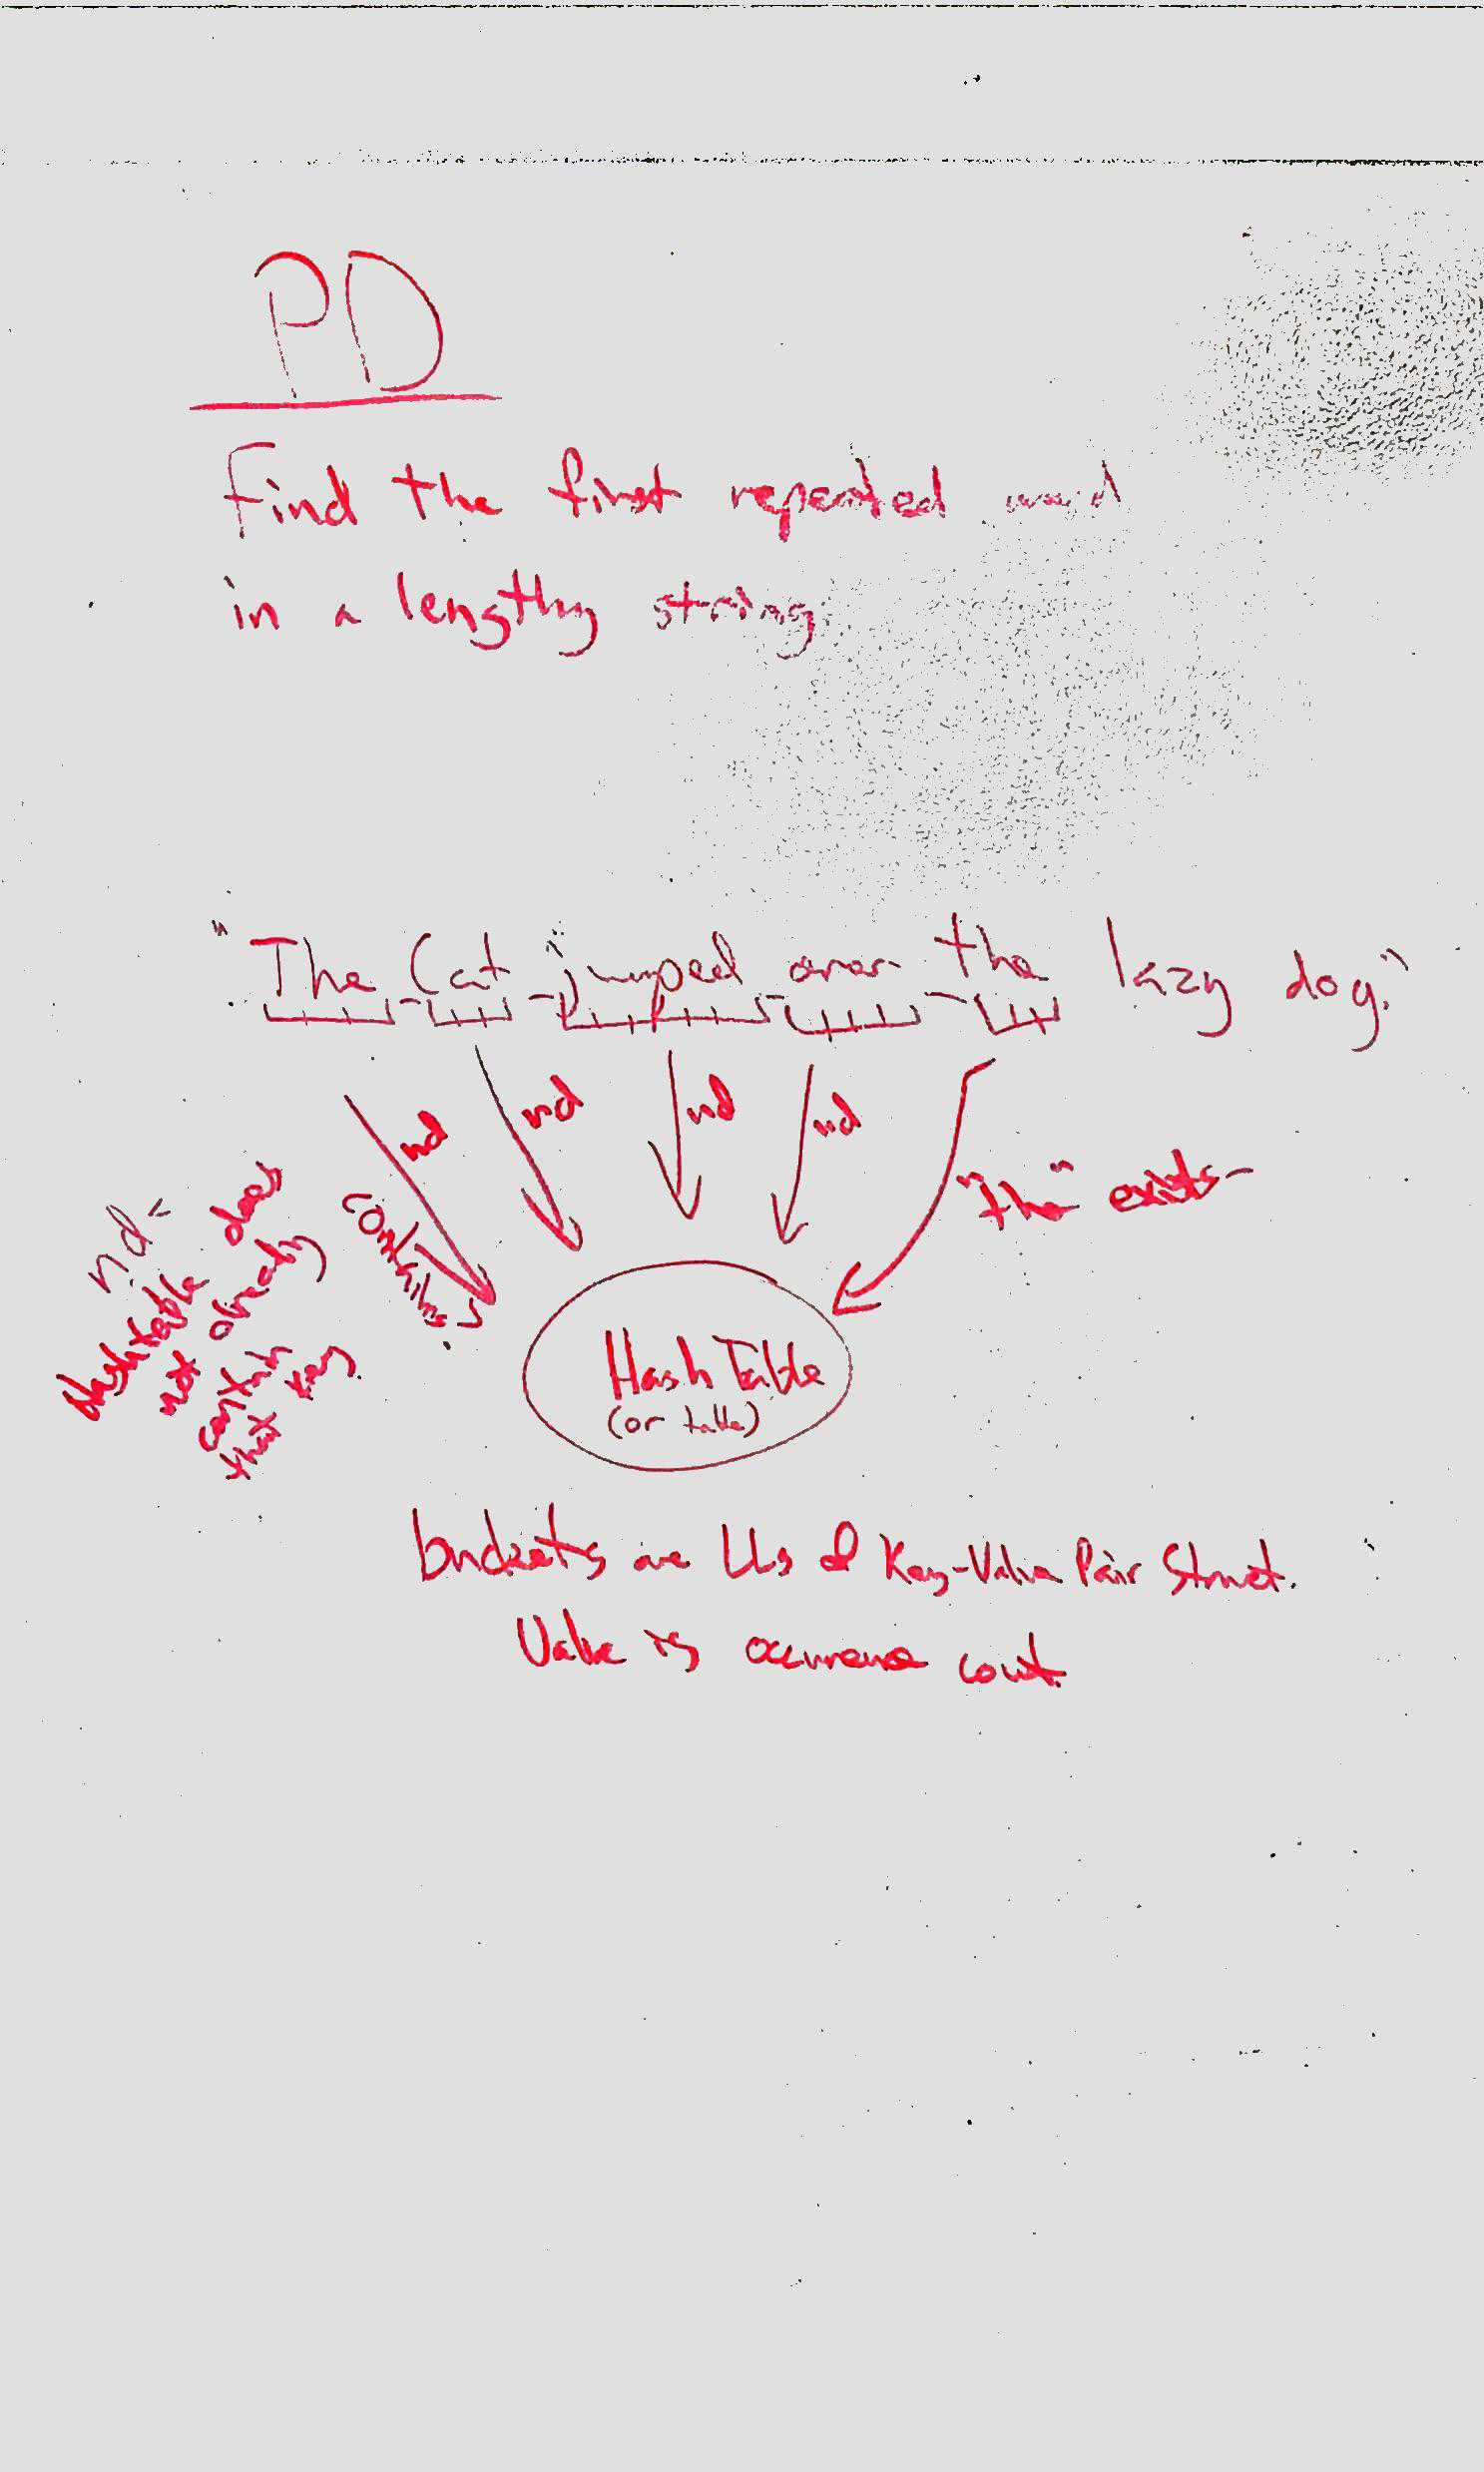 PD
Find the first repeated word
in a lengthy string
"The Cat jumped over the lazy dog."
nd
nd
nd
nd
"the" exists
contains?
nd =
Hashtable does
not already
contain
that key
Hash Table
(or table)
buckets are LLs of Key-Value Pair Struct.
Value is occurrence count.